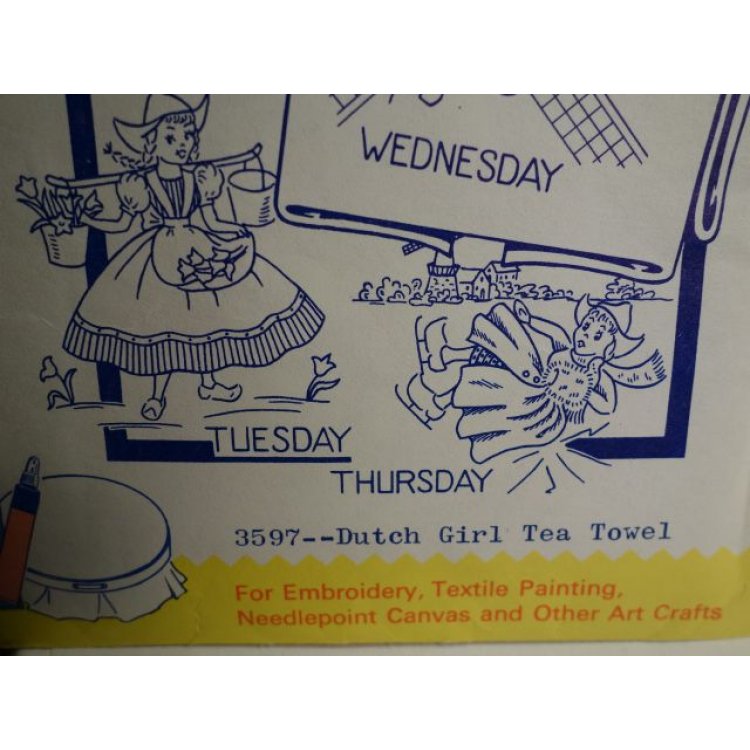 WEDNESDAY
TUESDAY
THURSDAY
3597--Dutch Girl Tea Towel
For Embroidery, Textile Painting,
Needlepoint Canvas and Other Art Crafts